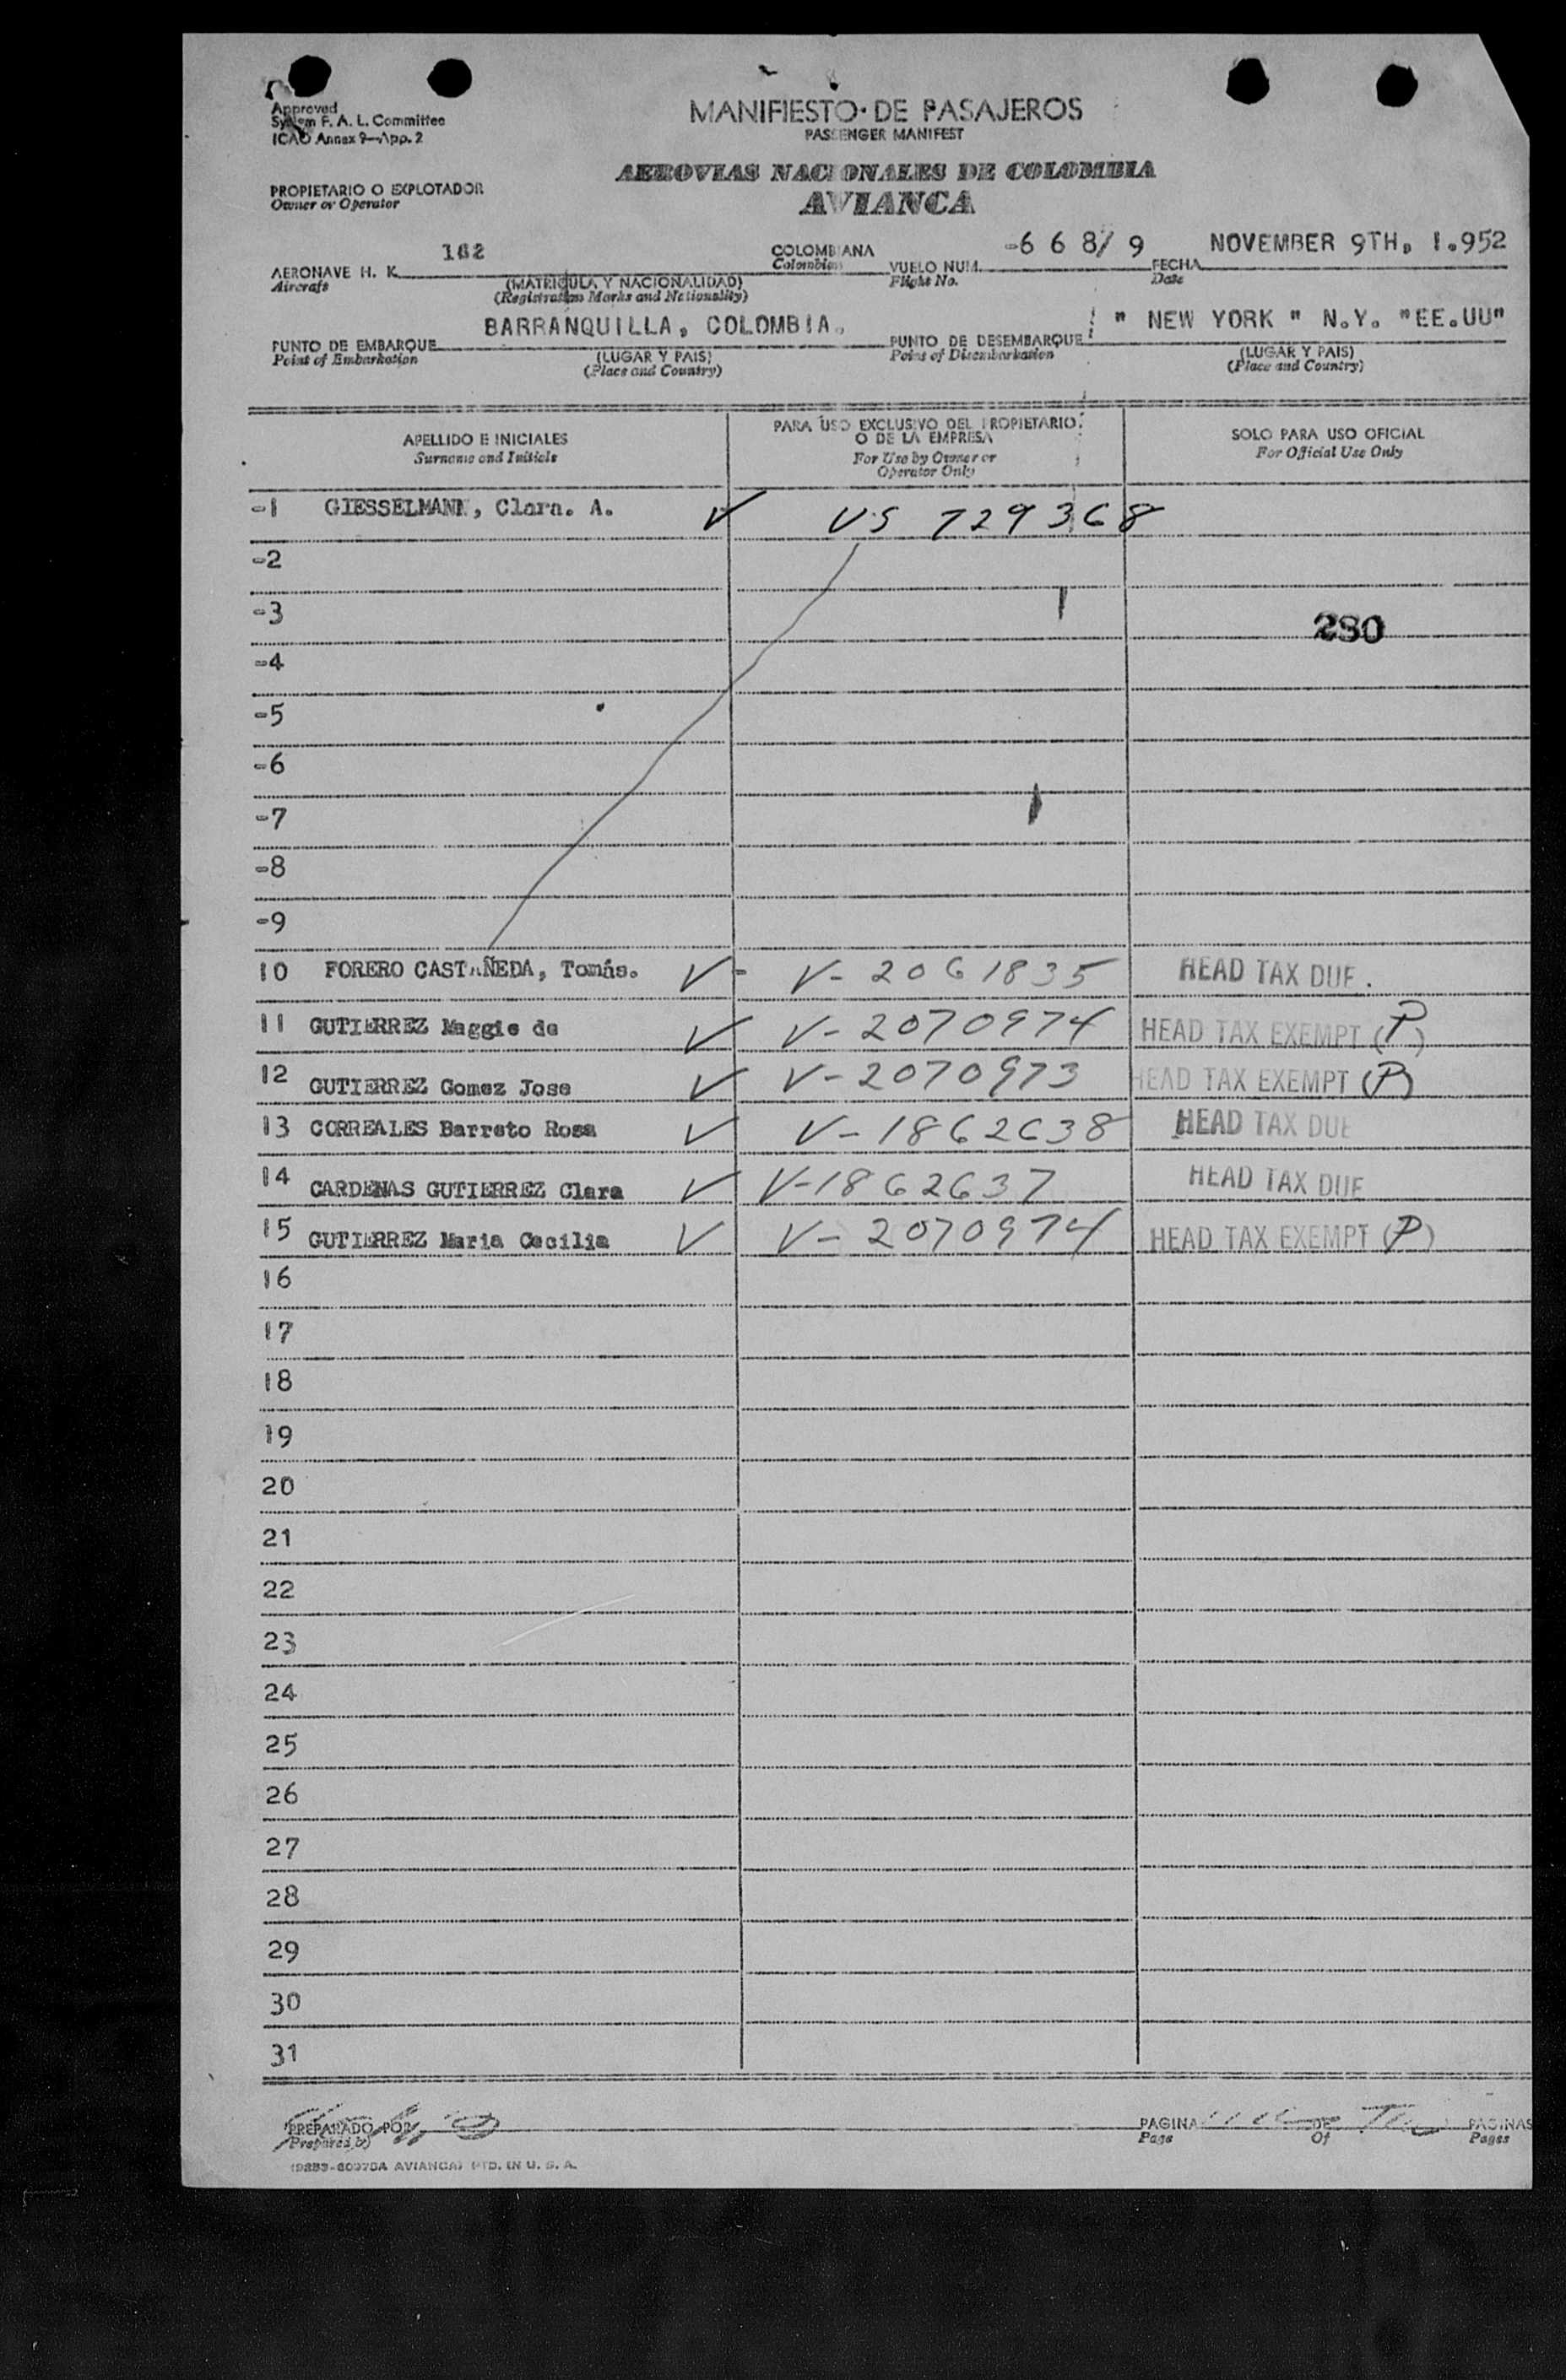 Approved
System F. A. L. Committee
ICAO Annex 9—App. 2
MANIFIESTO DE PASAJEROS
PASSENGER MANIFEST
AEROVIAS NACIONALES DE COLOMBIA
AVIANCA
PROPIETARIO O EXPLOTADOR
Owner or Operator
AERONAVE H. K. 162 COLOMBIANA VUELO NUM. -6 6 8/ 9 FECHA NOVEMBER 9TH, 1.952
Aircraft (MATRICULA Y NACIONALIDAD) Colombian Flight No. Date
(Registration Marks and Nationality)
PUNTO DE EMBARQUE BARRANQUILLA, COLOMBIA. PUNTO DE DESEMBARQUE " NEW YORK " N.Y. "EE.UU"
Point of Embarkation (LUGAR Y PAIS) Point of Disembarkation (LUGAR Y PAIS)
(Place and Country) (Place and Country)
APELLIDO E INICIALES PARA USO EXCLUSIVO DEL PROPIETARIO O DE LA EMPRESA SOLO PARA USO OFICIAL
Surname and Initials For Use by Owner or Operator Only For Official Use Only
-1 GIESSELMANN, Clara. A. ✓ US 729368
-2
-3
280
-4
-5
-6
-7
-8
-9
10 FORERO CASTAÑEDA, Tomás. ✓ - V-2061835 HEAD TAX DUE.
11 GUTIERREZ Maggie de ✓ V-2070974 HEAD TAX EXEMPT (P)
12 GUTIERREZ Gomez Jose ✓ V-2070973 HEAD TAX EXEMPT (P)
13 CORREALES Barreto Rosa ✓ V-1862638 HEAD TAX DUE
14 CARDENAS GUTIERREZ Clara ✓ V-1862637 HEAD TAX DUE
15 GUTIERREZ Maria Cecilia ✓ V-2070974 HEAD TAX EXEMPT (P)
16
17
18
19
20
21
22
23
24
25
26
27
28
29
30
31
PREPARADO POR PAGINA DE PAGINAS
Prepared by Page Of Pages
AVIANCA) PTD. IN U. S. A.